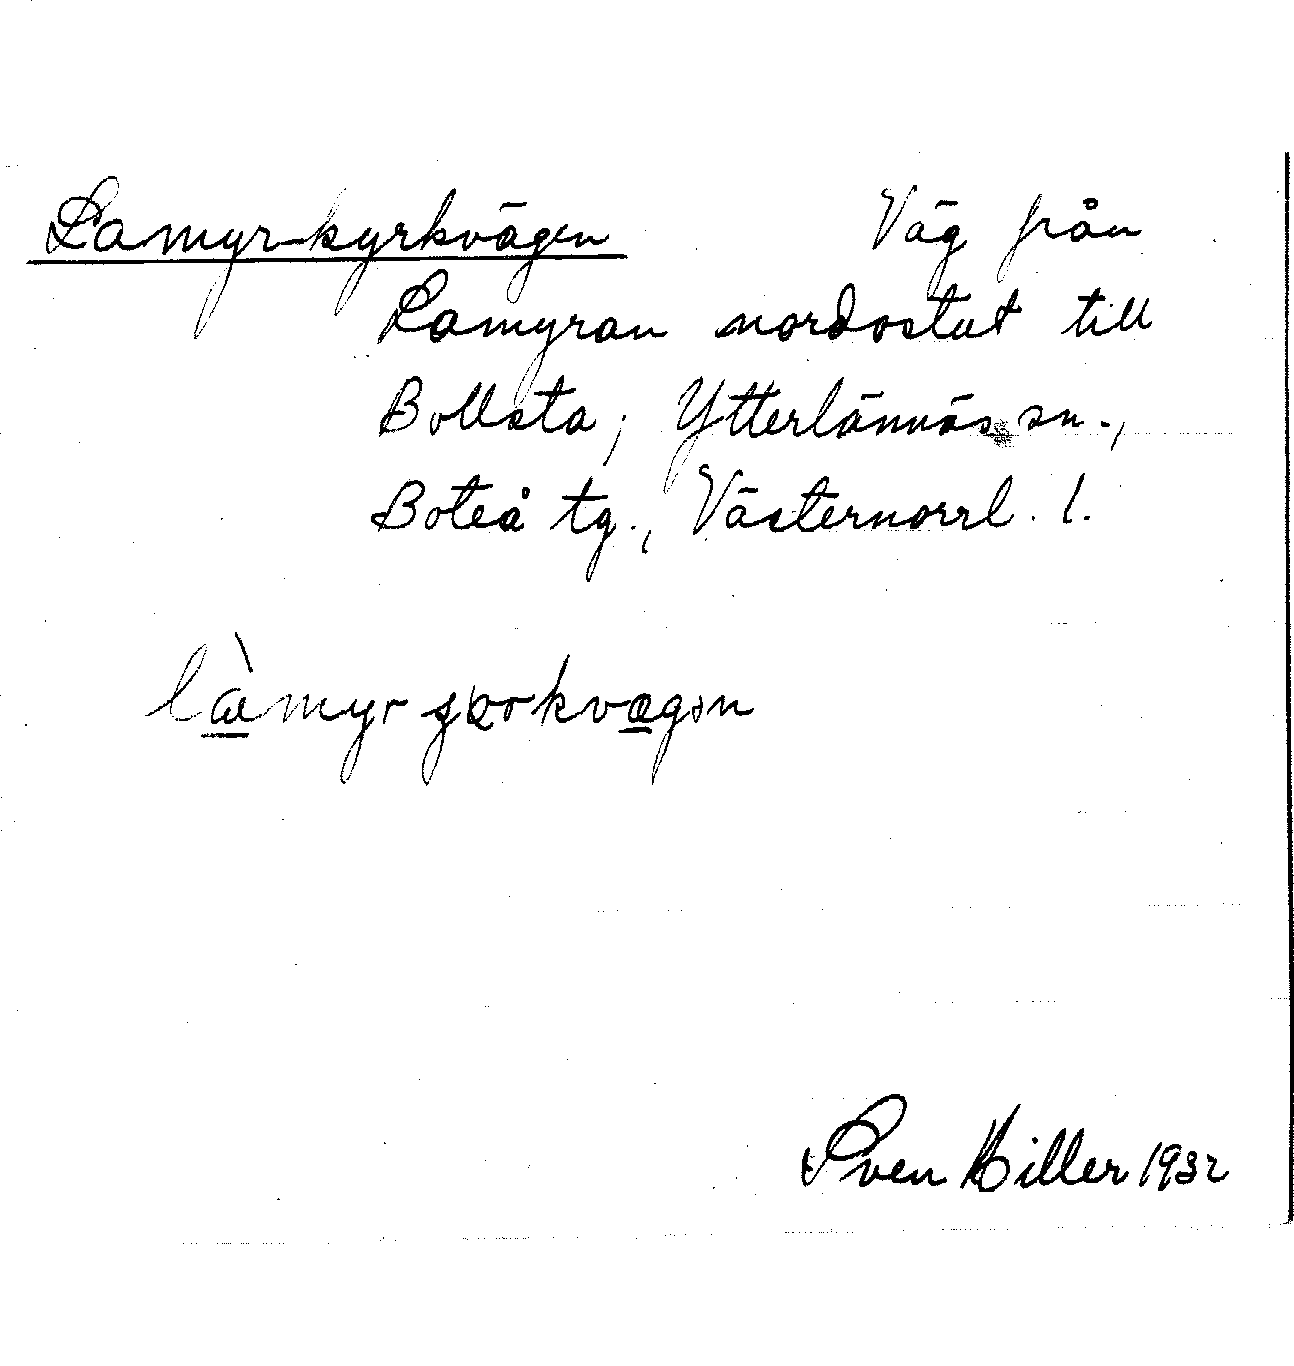 Lamyr-kyrkvägen Väg från
Lamyran nordostut till
Bollsta, Ytterlännäs sn.,
Boteå tg., Västernorrl. l.
Sven Hiller 1932